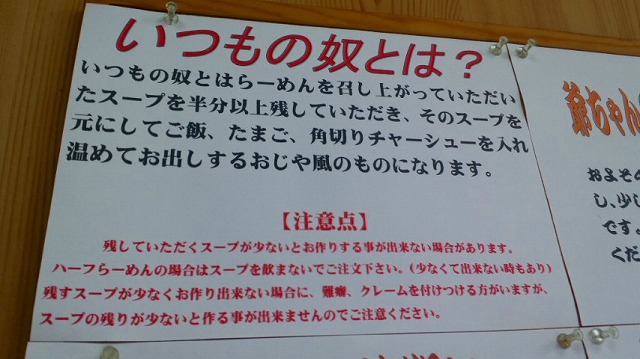 いつもの奴とは？
いつもの奴とはらーめんを召し上がっていただい
たスープを半分以上残していただき、そのスープを
元にしてご飯、たまご、角切りチャーシューを入れ
温めてお出しするおじや風のものになります。
【注意点】
残していただくスープが少ないとお作りする事が出来ない場合があります。
ハーフらーめんの場合はスープを飲まないでご注文下さい。(少なくて出来ない時もあり)
残すスープが少なくお作り出来ない場合に、難癖、クレームを付けつける方がいますが、
スープの残りが少ないと作る事が出来ませんのでご注意ください。
爺ちゃん
およその
し、少し
です。
くだ